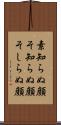 素知らぬ顔
そ知らぬ顔
そしらぬ顔